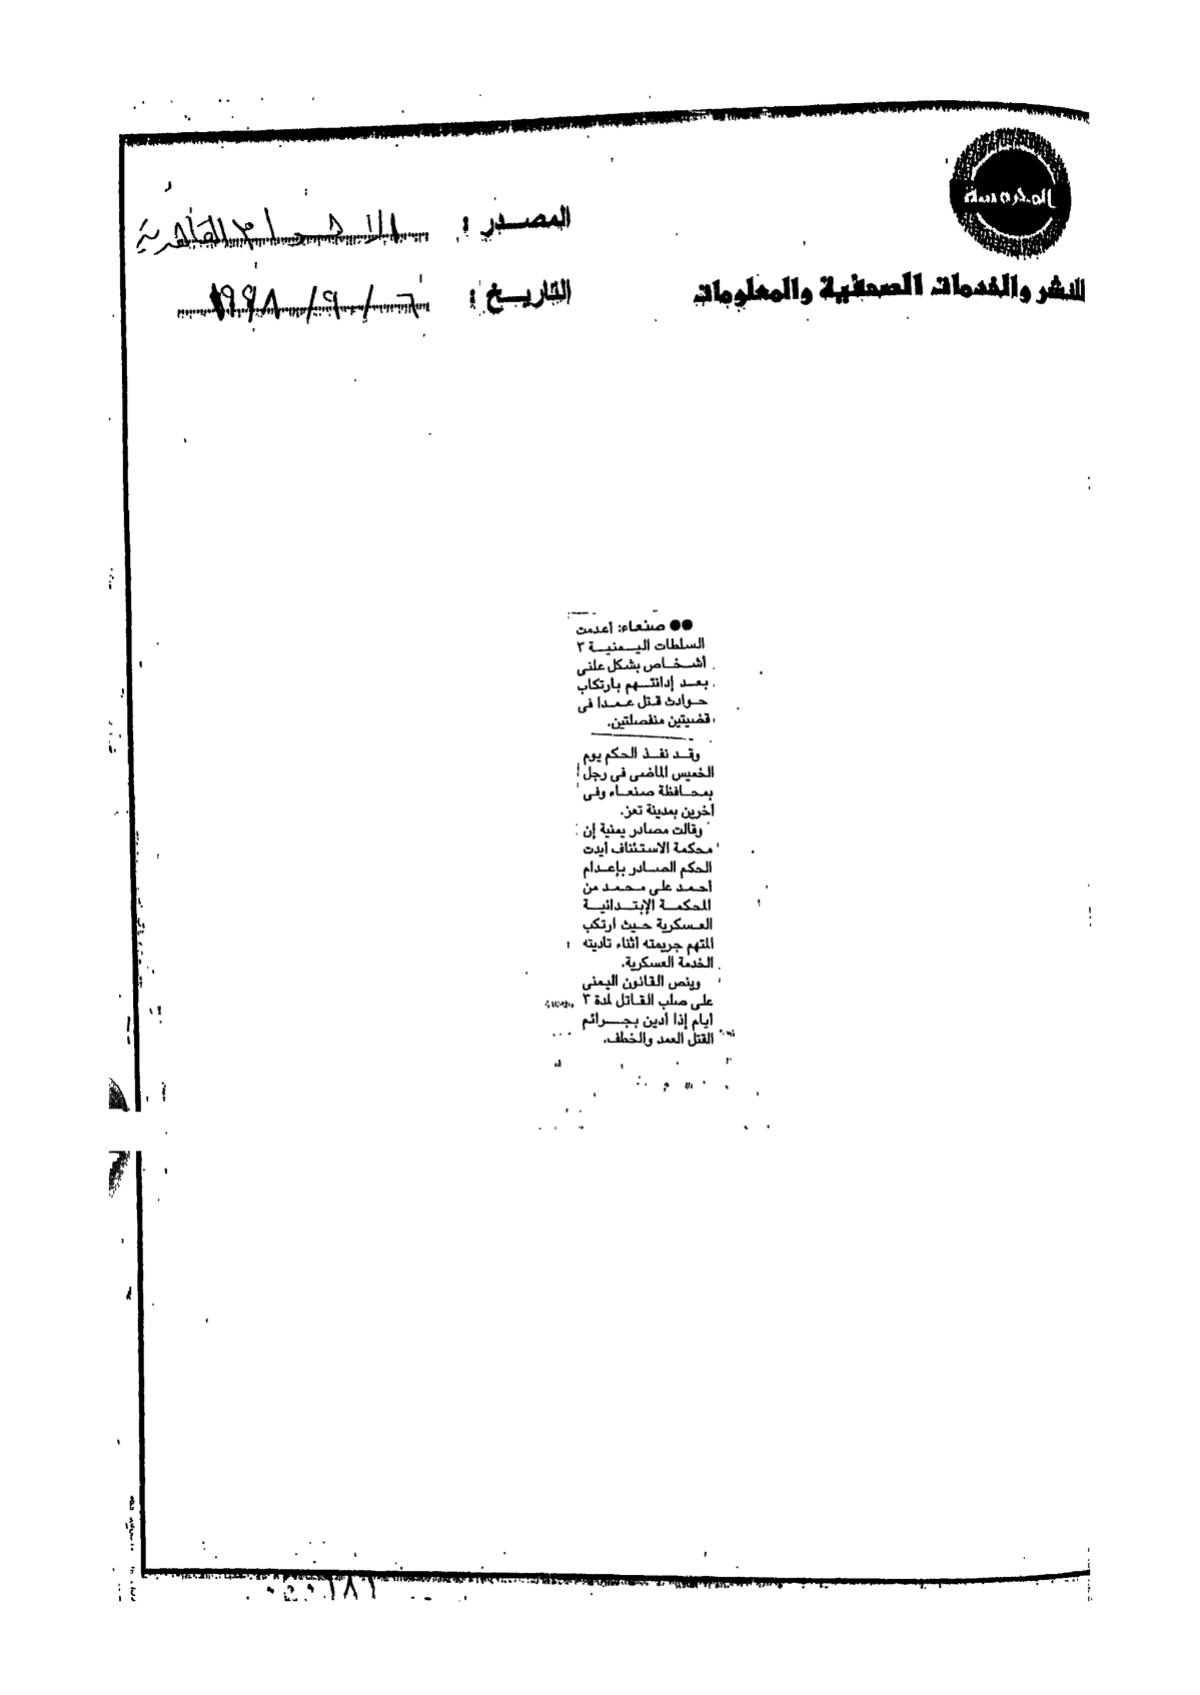 المحروسة
للنشر والخدمات الصحفية والمعلومات
المصدر : الاهرام القاهرية
التاريخ : ٦ / ٩ / ١٩٩٨
●● صنعاء: أعدمت
السلطات اليمنية ٣
أشخاص بشكل علنى
بعد إدانتهم بارتكاب
حوادث قتل عمدا فى
قضيتين منفصلتين.
وقد نفذ الحكم يوم
الخميس الماضى فى رجل
بمحافظة صنعاء وفى
آخرين بمدينة تعز.
وقالت مصادر يمنية إن
محكمة الاستئناف أيدت
الحكم الصادر بإعدام
أحمد على محمد من
المحكمة الإبتدائية
العسكرية حيث ارتكب
المتهم جريمته أثناء تأديته
الخدمة العسكرية.
وينص القانون اليمنى
على صلب القاتل لمدة ٣
ايام إذا أدين بجرائم
القتل العمد والخطف.